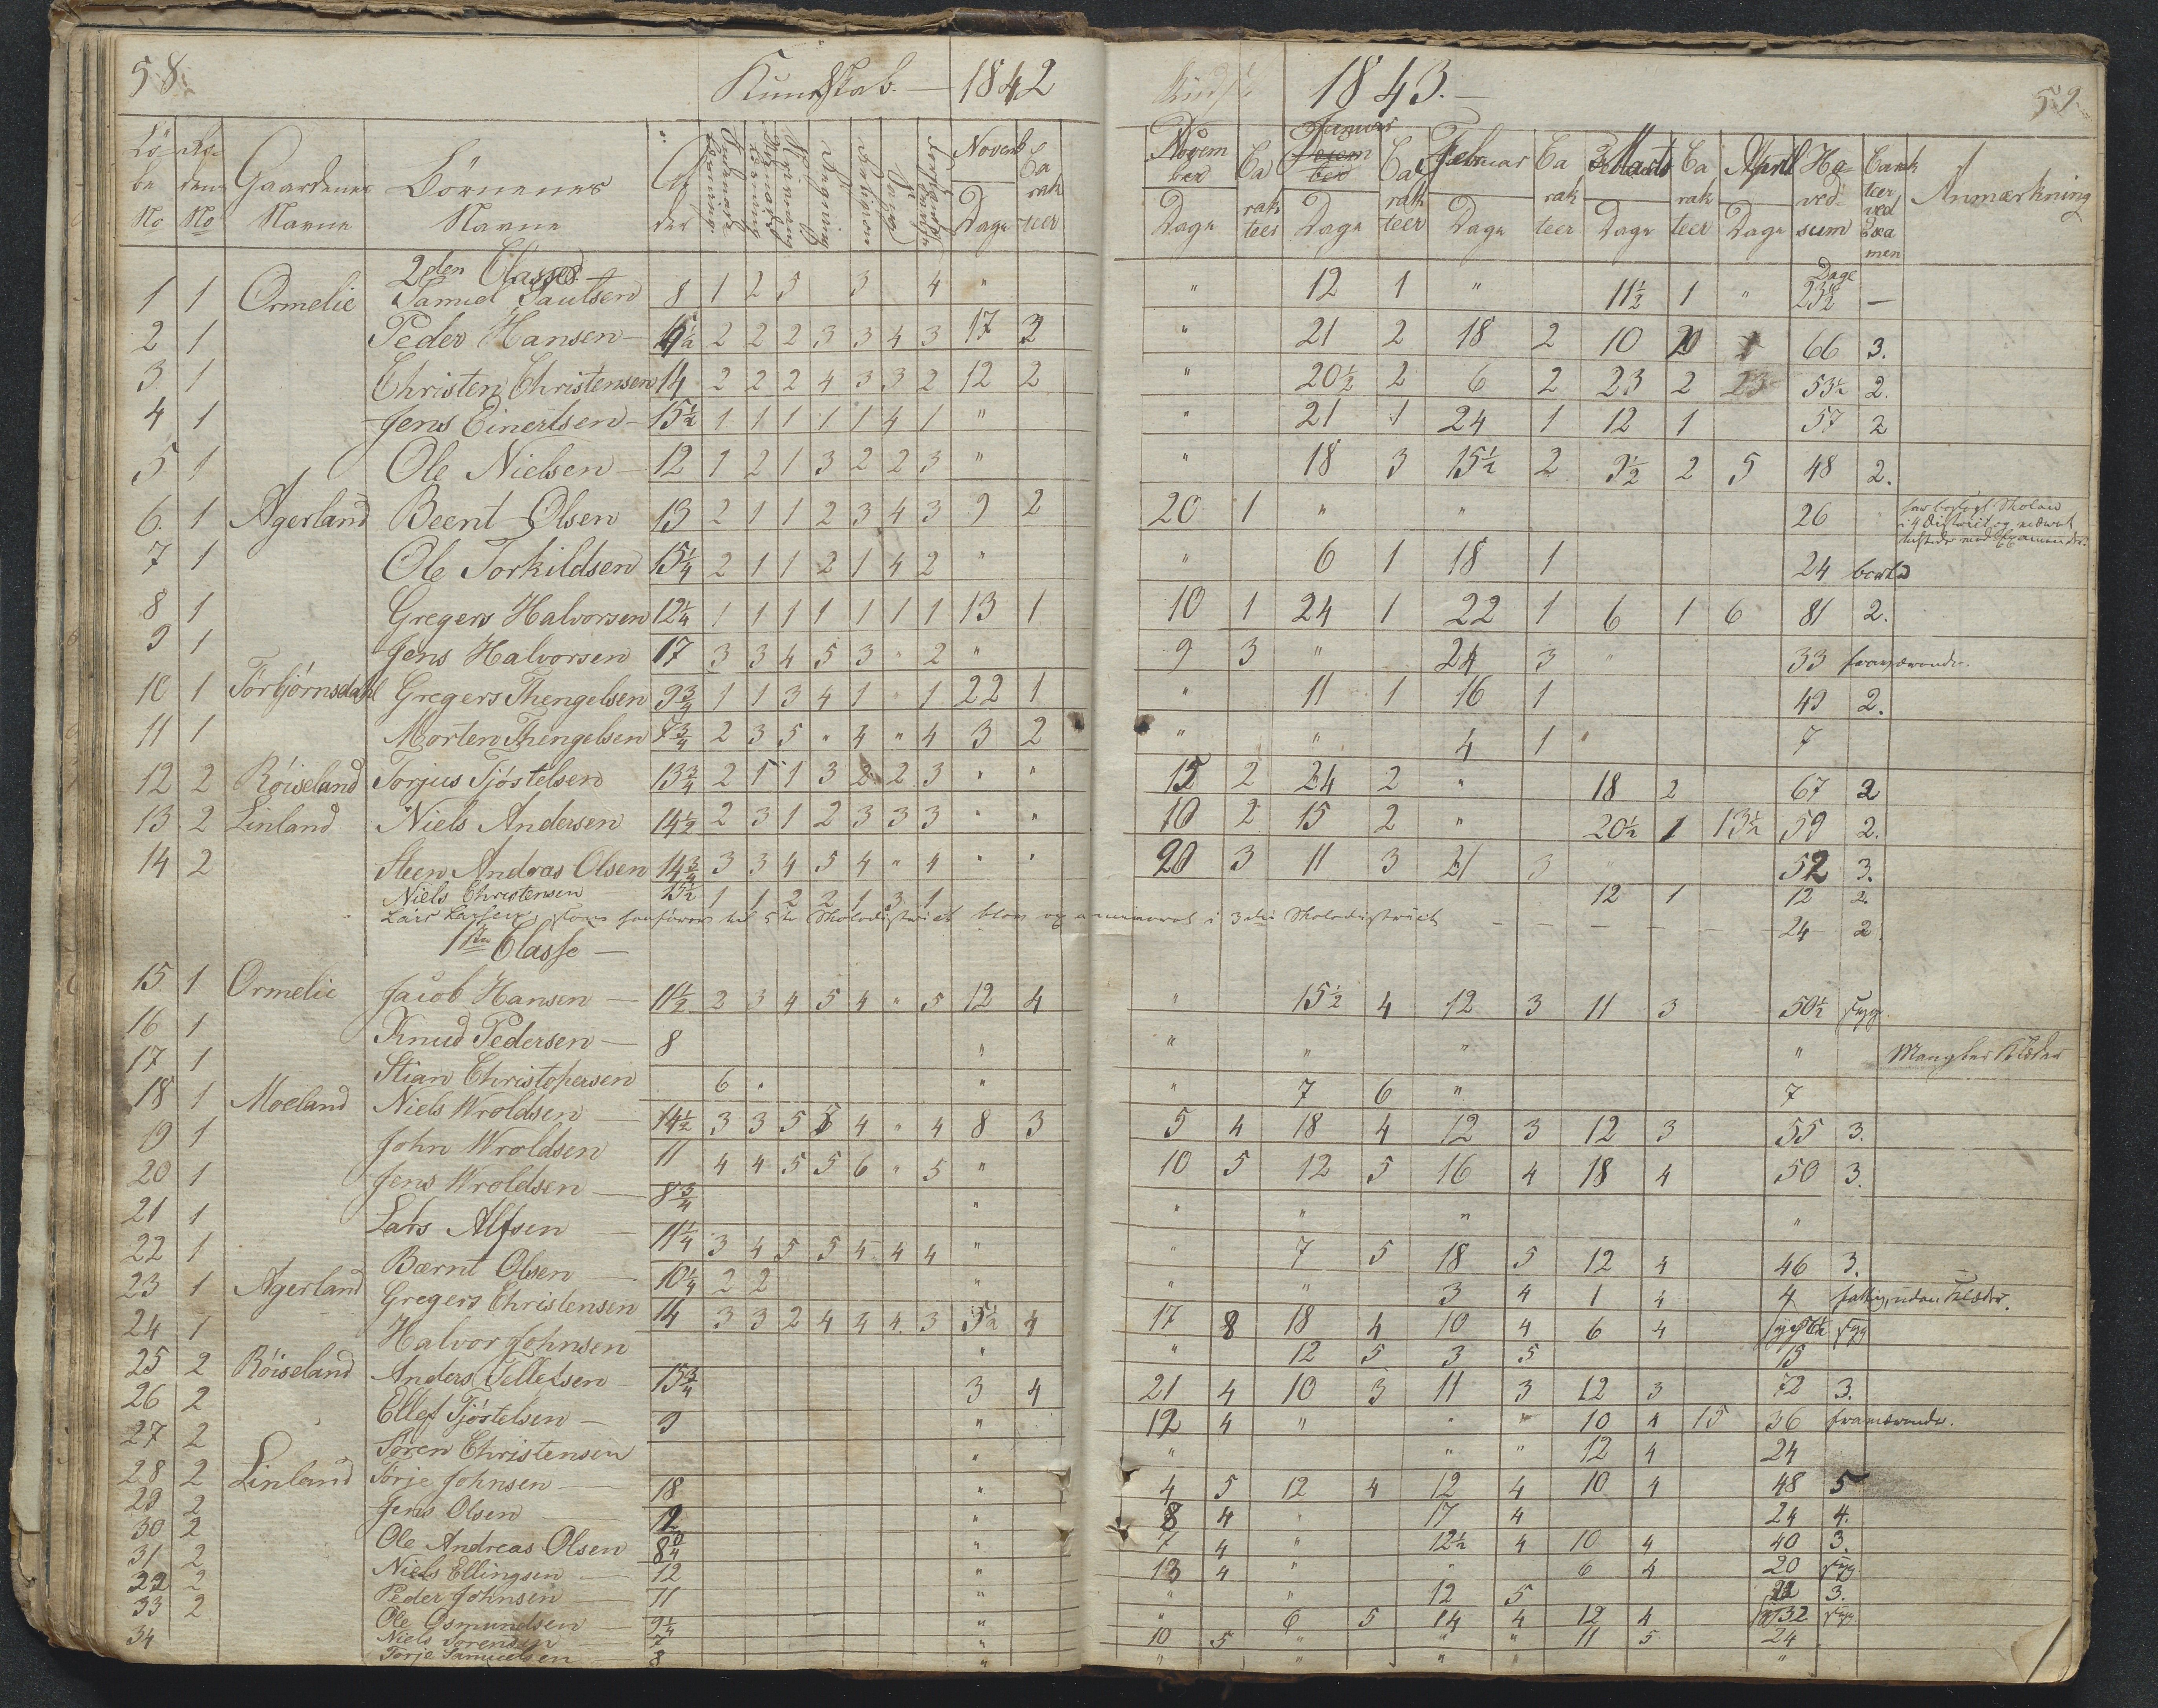 58. Kundskab. — 1842
Löbe No
dens No
Gaardenes Navne
Börnenes Navne
Alder
Novemb Dage
Carakteer
2den Classe
1 1 Ormelie Samuel Paulsen 8 1 2 5 3 4 "
2 1 Peder Hansen 2 2 2 3 3 4 3 17 3
3 1 Christen Christensen 14 2 2 2 4 3 3 2 12 2
4 1 Jens Einertsen 15½ 1 1 1 1 1 4 1 "
5 1 Ole Nielsen 12 1 2 1 3 2 2 3 "
6. 1 Agerland Beent Olsen 13 2 1 1 2 3 4 3 9 2
7 1 Ole Torkildsen 15¼ 2 1 1 2 1 4 2 "
8 1 Gregers Halvorsen 12¼ 1 1 1 1 1 1 1 13 1
9 1 Jens Halvorsen 17 3 3 4 5 3 " 2 "
10 1 Törbjörnsdahl Gregers Thengelsen 9¾ 1 1 3 4 1 " 1 22 1
11 1 Morten Thengelsen 7¾ 2 3 5 " 4 " 4 3 2
12 2 Röiseland Torjus Tjöstelsen 13¾ 2 1 1 3 2 2 3 " "
13 2 Linland Niels Andersen 14½ 2 3 1 2 3 3 3 " "
14 2 Steen Andreas Olsen 14¾ 3 3 4 5 4 " 4 " "
Niels Christensen 15½ 1 1 2 2 1 3 1
Lars Larsen, som henförer til 5te Skoledistrict blev og examineret i 3die Skoledistrict
1ste Classe —
15 1 Ormelie Jacob Hansen 11½ 2 3 4 5 4 " 5 12 4
16 1 Knud Pedersen 8 "
17 1 Stian Christophersen 6 " "
18 1 Moeland Niels Wroldsen 14½ 3 3 5 5 4 " 4 8 3
19 1 John Wroldsen 11 4 4 5 5 6 " 5 "
20 1 Jens Wroldsen 8¾ "
21 1 Lars Alfsen 11¼ 3 4 5 5 4 4 4 "
22 1 Bærnt Olsen 10¼ 2 2 "
23 1 Agerland Gregers Christensen 14 3 3 2 4 4 4 3 5½ 4
24 1 Halvor Johnsen "
25 2 Röiseland Anders Tellefsen 15¾ 3 4
26 2 Ellef Tjöstelsen 9 "
27 2 Sören Christensen "
28 2 Linland Torje Johnsen 18 "
29 2 Jens Olsen 12 "
30 2 Ole Andreas Olsen "
31 2 Niels Ellingsen 12 "
32 2 Peder Johnsen 11 "
33 2 Ole Osmundsen 9¼ "
34 Niels Sorensen 7 "
Torje Samuelsen 8 "
1843. — 59.
November Dage
Carakteer
Januar Dage
Carakteer
Februar Dage
Carakteer
Marts Dage
Carakteer
April Dage
Hovedsum
Carakteer ved Examen
Anmærkning
Dage
" 12 1 " 11½ 1 " 23½ —
" 21 2 18 2 10 66 3.
" 20½ 2 6 2 23 2 53½ 2.
" 21 1 24 1 12 1 57 2
" 18 3 15½ 2 9½ 2 5 48 2.
20 1 " " 26
" 6 1 18 1 24
10 1 24 1 22 1 6 1 6 81 2.
9 3 " 24 3 " 33 fraværende.
" 11 1 16 1 49 2.
" " 4 1 " 7
15 2 24 2 " 18 2 67 2
10 2 15 2 " 20½ 1 13½ 59 2.
20 3 11 3 21 3 52 3.
12 1 12 2.
24 2.
" 15½ 4 12 3 11 3 50½ syg.
" " " " Mangler Klæder
" 7 6 " 7
5 4 18 4 12 3 12 3 55 3.
10 5 12 5 16 4 18 4 50 3.
" " " "
" 7 5 18 5 12 4 46 3.
" " 3 4 1 4 4 fattig, uden Klæder.
17 8 18 4 10 4 6 4 syg
" 12 5 3 5 15
21 4 10 3 11 3 12 3 72 3.
12 4 " " " 10 4 15 36 fraværende.
" " " 12 4 24
4 5 12 4 12 4 10 4 48 5
8 4 " 17 4 24 4.
7 4 " 12½ 4 10 4 40 3.
13 4 " " 6 4 20 syg
" " 12 5 3.
" 6 5 14 4 12 4 32 syg.
10 5 " " " 11 5 24
" " " " "